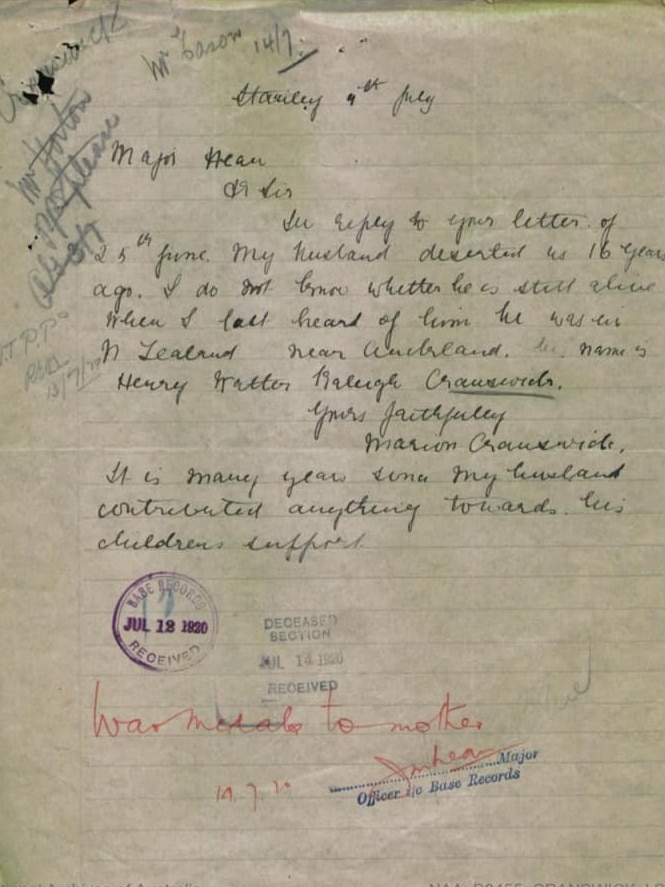 Cranswick
Mr Cason 14/7.
Mr Horton
please
Stanley 9th July
Major Hean
Dr Sir
In reply to your letter of
25th June. My husband deserted us 16 years
ago. I do not know whether he is still alive
When I last heard of him he was in
N Zealand near Auckland. his name is
Henry Walter Raleigh Cranswick.
Yours faithfully
Marion Cranswick.
It is many years since my husband
contributed anything towards his
childrens support
BASE RECORDS
JUL 12 1920
RECEIVED
DECEASED
SECTION
JUL 14 1920
RECEIVED
War medals to mother
JMHean Major
Officer i/c Base Records
19.7.20